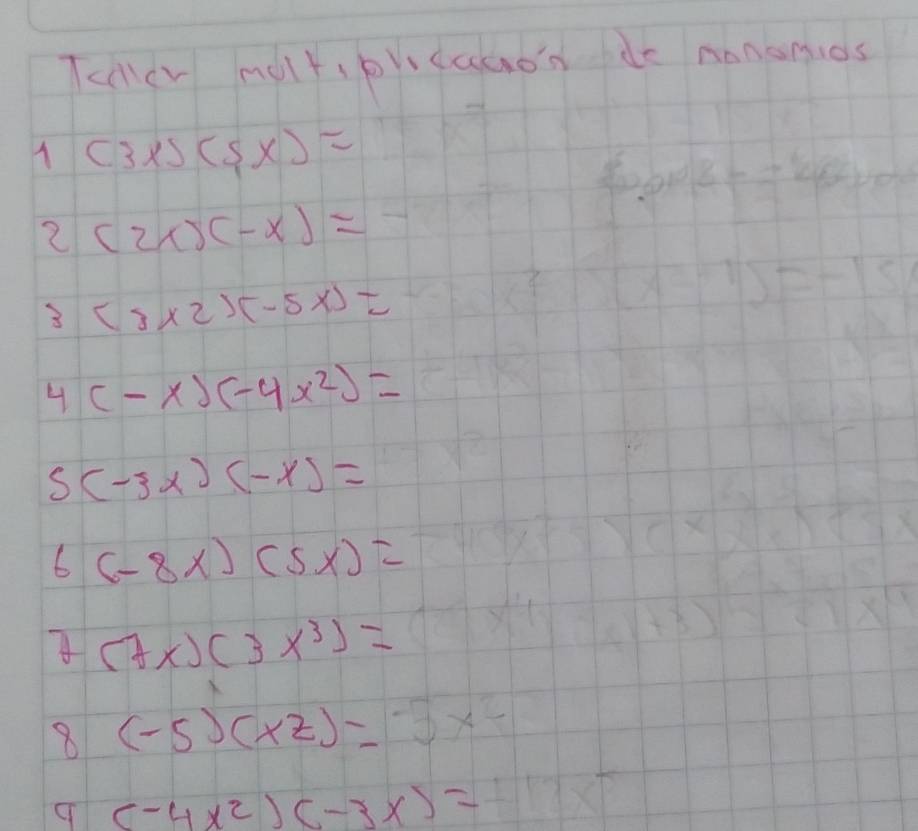 Taller multiplicación de monomios
1 (3x)(5x) =
2 (2x)(-x) =
3 (3x2)(-5x) =
4 (-x)(-4x²) =
5 (-3x)(-x) =
6 (-8x)(5x) =
7 (7x)(3x³) =
8 (-5)(x2) =
9 (-4x2)(-3x) =